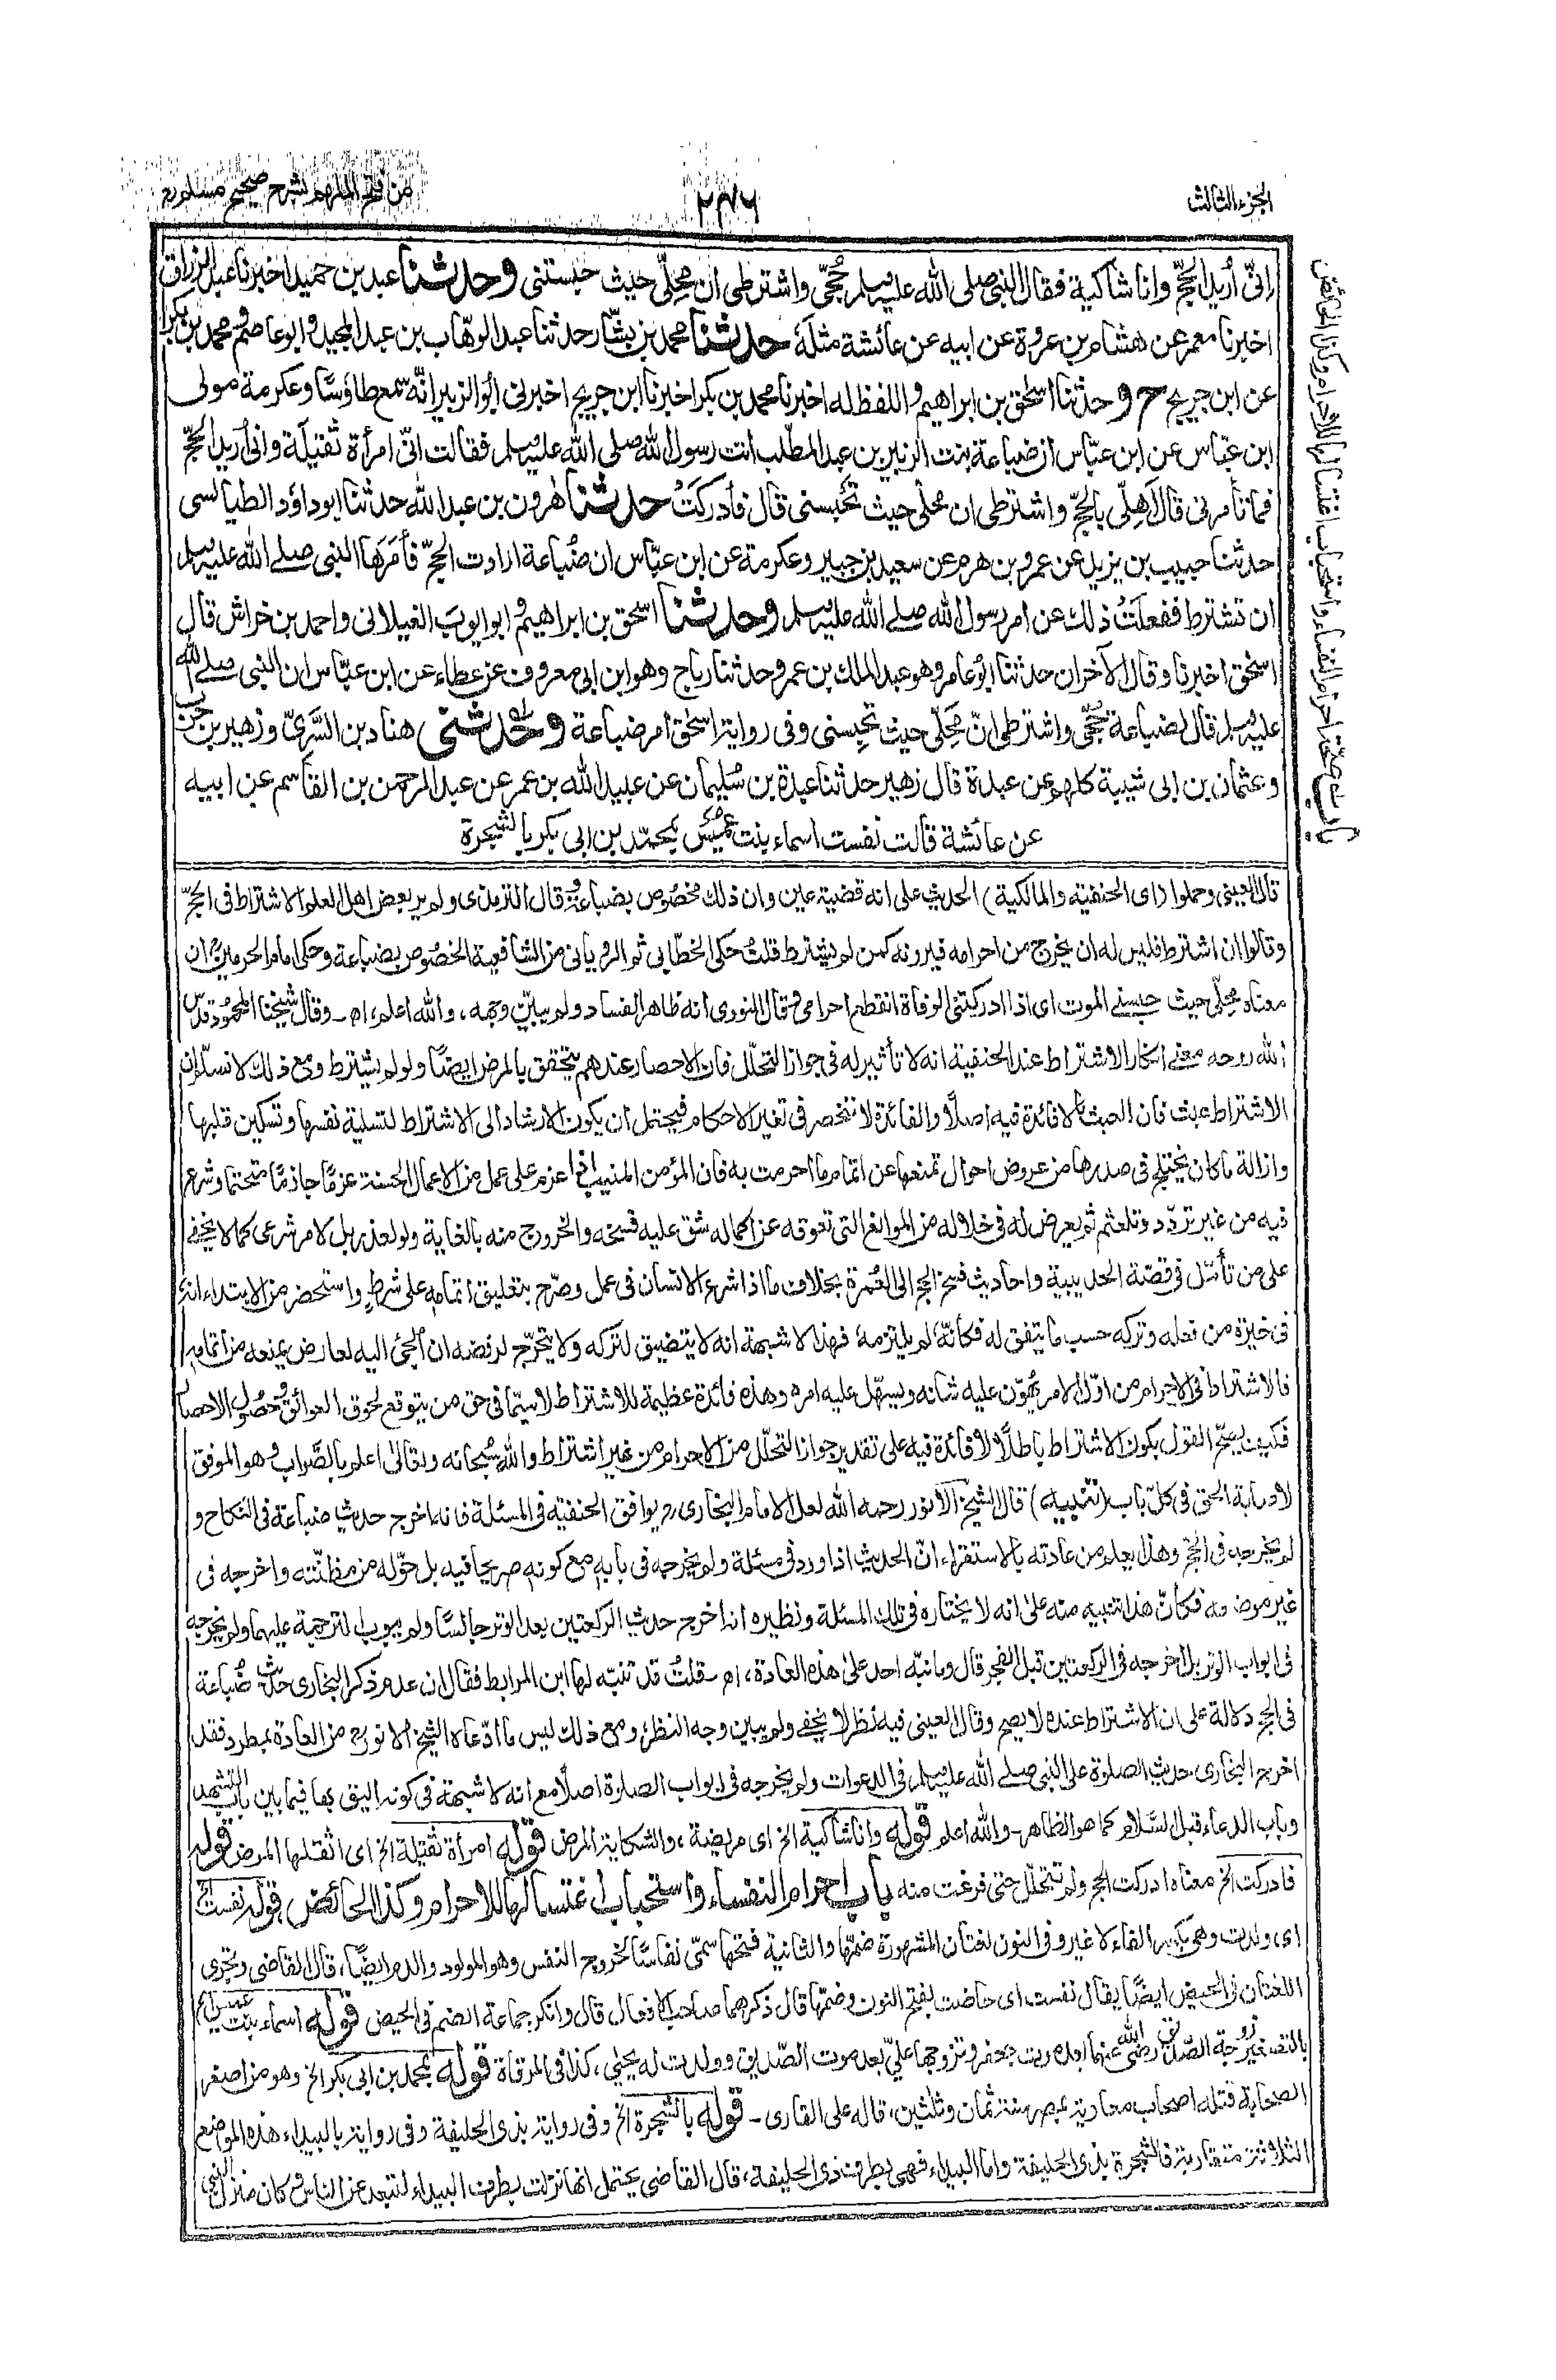 الجزء الثالث
٢٤٦
من فتح الملهم بشرح صحيح مسلم
باب صحة احرام النفساء واستحباب اغتسالها للاحرام وكذا الحائض
انى أريد الحج وانا شاكية فقال النبى صلى الله عليه وسلم حجّى واشترطى ان محلّى حيث حبستنى وحدثنا عبد بن حميد اخبرنا عبد الرزاق
اخبرنا معمر عن هشام بن عروة عن ابيه عن عائشة مثله حدثنا محمد بن بشار حدثنا عبد الوهاب بن عبد المجيد وابو عاصم ومحمد بن بكر
عن ابن جريج ح وحدثنا اسحق بن ابراهيم واللفظ له اخبرنا محمد بن بكر اخبرنا ابن جريج اخبرنى ابو الزبير انّه سمع طاؤسًا وعكرمة مولى
ابن عبّاس عن ابن عبّاس ان ضباعة بنت الزبير بن عبد المطّلب اتت رسول الله صلى الله عليه وسلم فقالت انّى امرأة ثقيلة وانى أريد الحجّ
فما تأمرنى قال اَهِلّى بالحجّ واشترطى ان محلى حيث تحبسنى قال فأدركَتْ حدثنا هٰرون بن عبد الله حدثنا ابو داؤد الطيالسى
حدثنا حبيب بن يزيد عن عمرو بن هرم عن سعيد بن جبير وعكرمة عن ابن عبّاس ان ضُباعة ارادت الحجّ فأمَرَها النبى صلے الله عليه وسلم
ان تشترط ففعلَتْ ذلك عن امر رسول الله صلے الله عليه وسلم وحدثنا اسحق بن ابراهيم وابو ايوب الغيلانى واحمد بن خراش قال
اسحق اخبرنا وقال الآخران حدثنا ابو عامر وهو عبد الملك بن عمرو حدثنا رباح وهو ابن ابى معروف عن عطاء عن ابن عبّاس ان النبى صلے الله
عليه وسلم قال لضباعة حُجّى واشترطى انّ مَحِلّى حيث تحبسنى وفى رواية اسحٰق امر ضباعة وحدثنى هناد بن السَّرِىّ وزهير بن حرب
وعثمان بن ابى شيبة كلهم عن عبدة قال زهير حدثنا عبدة بن سُليمان عن عبيد الله بن عمر عن عبد الرحمن بن القاسم عن ابيه
عن عائشة قالت نفست اسماء بنت عُمَيْس بمحمّد بن ابى بكر بالشجرة
قال العينى وحملوا (اى الحنفية والمالكية) الحديث على انه قضية عين وان ذلك مخصوص بضباعة وقال الترمذى ولم ير بعض اهل العلم الاشتراط فى الحجّ
وقالوا ان اشترط فليس له ان يخرج من احرامه فيرونه كمن لم يشترط قلتُ حكى الخطّابى ثم الرويانى من الشافعية الخصُوص بضباعة وحكى امام الحرمين ان
معناه محِلّى حيث حبسنے الموت اى اذا ادركتنى الوفاة انقطع احرامى وقال النووى انه ظاهر الفساد ولم يبيّن وجهه، والله اعلم، اه ـ وقال شيخنا المحمُود قدس
الله روحه معنے انكار الاشتراط عند الحنفية انه لا تأثير له فى جواز التحلّل فان الاحصار عندهم يتحقق بالمرض ايضًا ولو لم يشترط ومع ذلك لا نسلّم ان
الاشتراط عبث فان العبث ما لا فائدة فيه اصلًا والفائدة لا تنحصر فى تغير الاحكام فيحتمل ان يكون الارشاد الى الاشتراط لتسلية نفسها وتسكين قلبها
وازالة ما كان يختلج فى صدرها من عروض احوال تمنعها عن اتمام ما احرمت به فان المؤمن المنيب اذا عزم على عمل من الاعمال الحسنة عزمًا جازمًا متحتما وشرع
فيه من غير تردّد وتلعثم ثم يعرض له فى خلاله من الموانع التى تعوقه عن اكماله شق عليه فسخه والخروج منه بالغاية ولو لعذر بل لامر شرعى كما لا يخفے
على من تأمّل فى قصّة الحديبية واحاديث فسخ الحج الى العُمرة بخلاف ما اذا شرع الانسان فى عمل وصرّح بتعليق اتمامه على شرطٍ واستحضر من الابتداء انه
فى خيرة من فعله وتركه حسب ما يتفق له فكأنّه لم يلتزمه، فهذا لا شبهة انه لا يتضيق لتركه ولا يتحرّج لرفضه ان أُلجئ اليه لعارض يمنعه من اتمامه
فالاشتراط فى الاحرام من اوّل الامر يهوّن عليه شانه ويسهّل عليه امره وهذه فائدة عظيمة للاشتراط لاسيّما فى حق من يتوقع لحوق العوائق وحصُول الاحصار
فكيف يصحّ القول بكون الاشتراط باطلًا لا فائدة فيه على تقدير جواز التحلّل من الاحرام من غير اشتراط والله سُبحانه وتعالىٰ اعلم بالصّواب وهو الموفق
لاصابة الحق فى كلّ باب (تنبيه) قال الشيخ الانور رحمه الله لعل الامام البخارى رح يوافق الحنفية فى المسئلة فانه اخرج حديث ضباعة فى النكاح و
لم يخرجه فى الحج وهذا يعلم من عادته بالاستقراء انّ الحديث اذا ورد فى مسئلة ولم يخرجه فى بابه مع كونه صريحا فيه بل حوّله من مظنّته واخرجه فى
غير موضعه فكأنّ هذا تنبيه منه على انه لا يختاره فى تلك المسئلة ونظيره انه اخرج حديث الركعتين بعد الوتر جالسًا ولم يبوب الترجمة عليهما ولم يخرجه
فى ابواب الوتر بل اخرجه فى الركعتين قبل الفجر قال وما نبّه احد علىٰ هذه العادة، اه ـ قلتُ قد تنبّه لها ابن المرابط فقال ان عدم ذكر البخارى حديث ضُباعة
فى الحج دلالة على ان الاشتراط عنده لا يصح وقال العينى فيه نظر لا يخفے ولم يبين وجه النظر، ومع ذلك ليس ما ادّعاه الشيخ الانور رح من العادة بمطرد فقد
اخرج البخارى حديث الصلوة على النبى صلے الله عليه وسلم فى الدعوات ولم يخرجه فى ابواب الصلوٰة اصلًا مع انه لا شبهة فى كونه اليق بها فيما بين باب التشهد
وباب الدعاء قبل السّلام كما هو الظاهر ـ والله اعلم قوله وانا شاكية الخ اى مريضة، والشكاية المرض قوله امرأة ثقيلة الخ اى اثقلها المرض قوله
فادركت الخ معناه ادركت الحج ولم تتحلّل حتى فرغت منه باب احرام النفساء واستحباب اغتسالها للاحرام وكذا الحائض، قوله نفست الخ
اى ولدت وهى بكسر الفاء لا غير وفى النون لغتان المشهورة ضمّها والثانية فتحها سمّى نفاسًا لخروج النفس وهو المولود والدم ايضًا، قال القاضى وتجرى
اللغتان فى الحيض ايضًا يقال نفست اى حاضت بفتح النون وضمّها قال ذكرهما صاحب الافعال قال وانكر جماعة الضم فى الحيض قوله اسماء بنت عميس الخ
بالتصغير زوجة الصّدّيق رضى الله عنهما بعد موت جعفر وتزوجها علىّ بعد موت الصّديق وولدت له يحيٰى، كذا فى المرقاة قوله بمحمد بن ابى بكر الخ وهو من اصغر
الصحابة قتله اصحاب معاوية بمصر سنة ثمان وثلثين، قاله على القارى ـ قوله بالشجرة الخ وفى رواية بذى الحليفة وفى رواية بالبيداء هذه المواضع
الثلاثة متقاربة فالشجرة بذى الحليفة واما البيداء فهى بطرف ذى الحليفة، قال القاضى يحتمل انها نزلت بطرف البيداء لتبعد عن الناس وكان منزل النبى